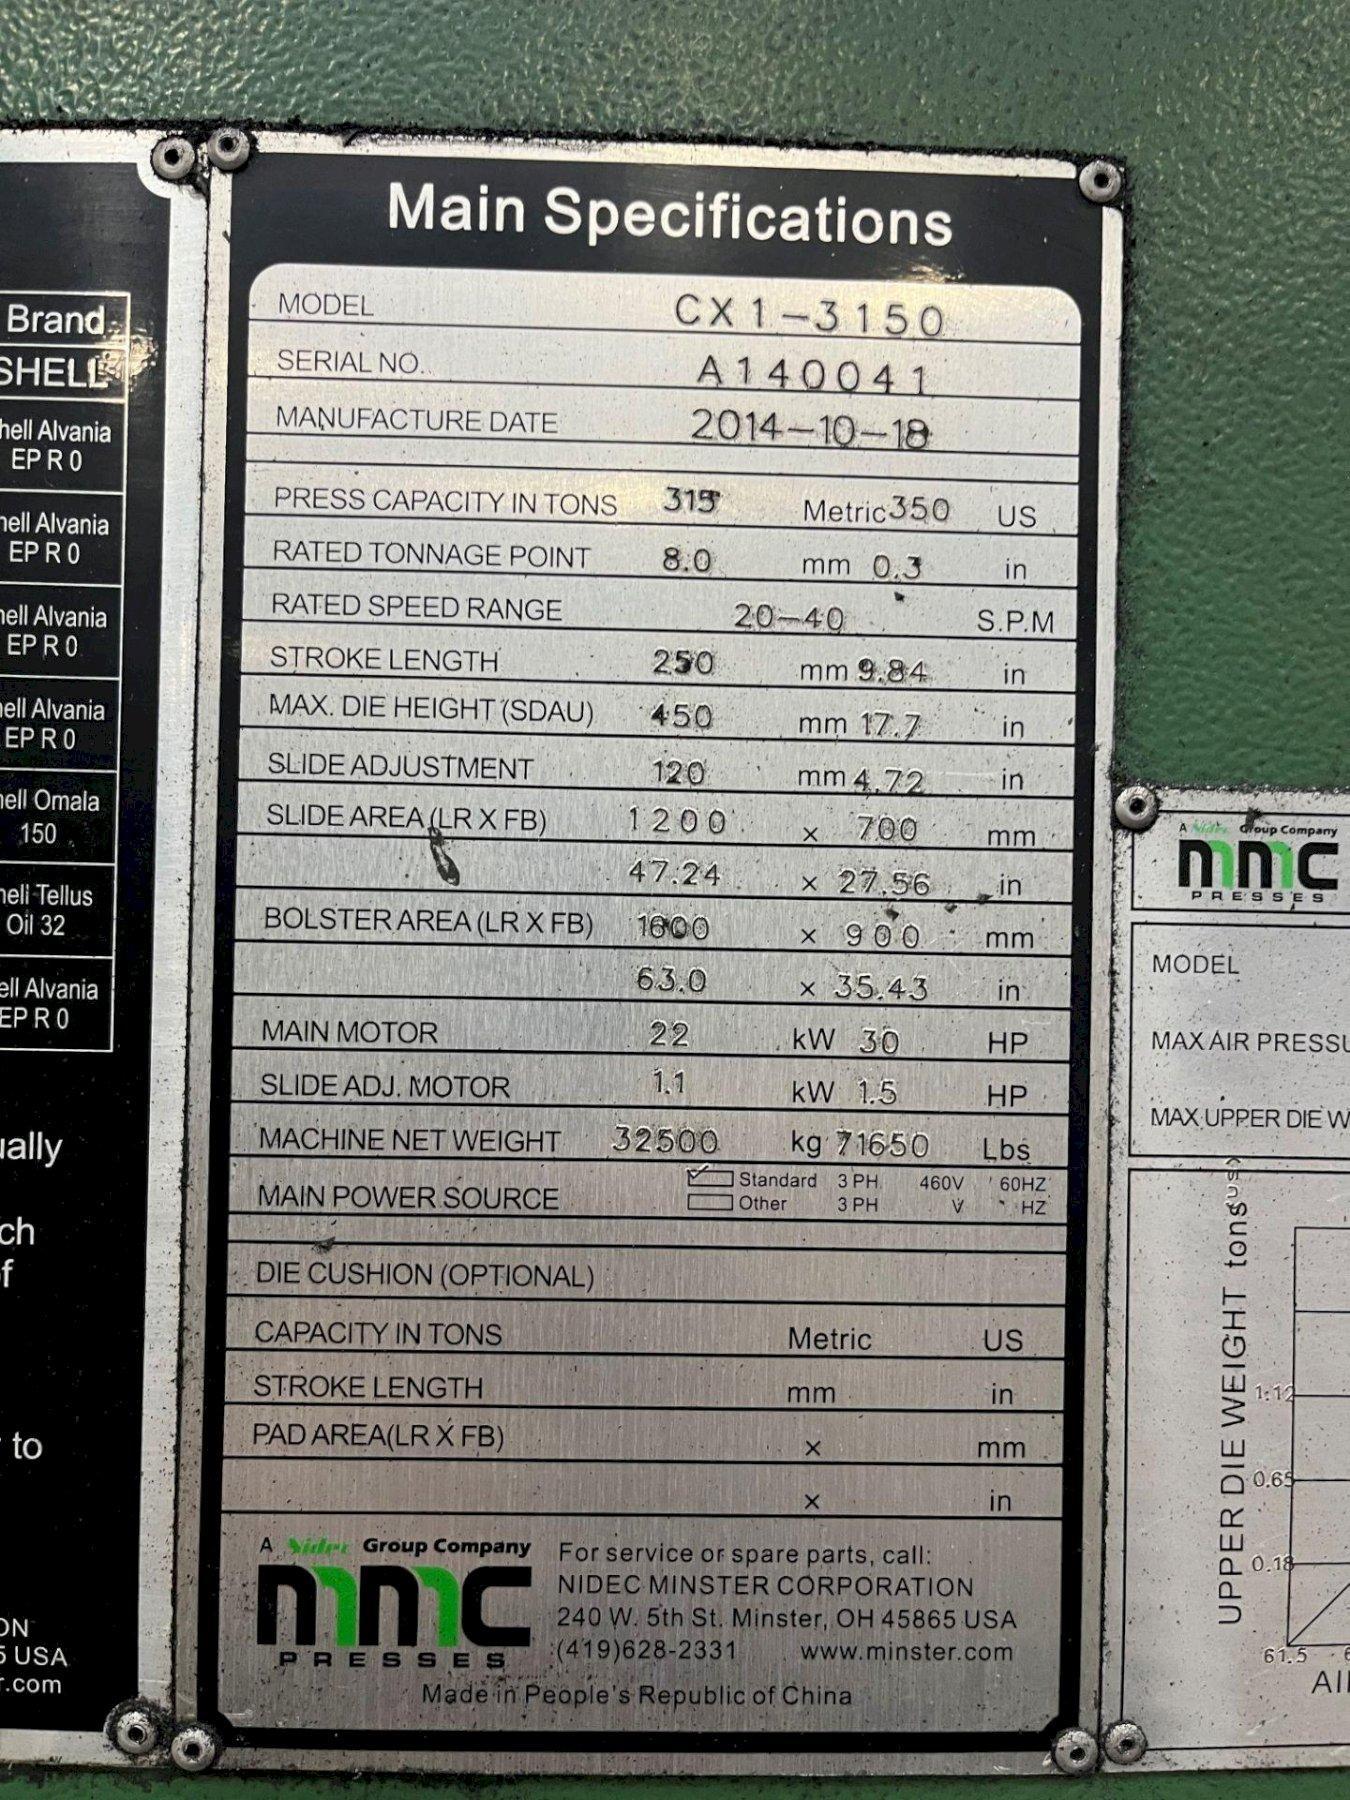 Brand
SHELL
hell Alvania
EP R 0
hell Alvania
EP R 0
hell Alvania
EP R 0
hell Alvania
EP R 0
hell Omala
150
hell Tellus
Oil 32
ell Alvania
EP R 0
ually
ch
of
to
ON
5 USA
r.com
Main Specifications
MODEL CX1-3150
SERIAL NO. A140041
MANUFACTURE DATE 2014-10-18
PRESS CAPACITY IN TONS 315 Metric 350 US
RATED TONNAGE POINT 8.0 mm 0.3 in
RATED SPEED RANGE 20-40 S.P.M
STROKE LENGTH 250 mm 9.84 in
MAX. DIE HEIGHT (SDAU) 450 mm 17.7 in
SLIDE ADJUSTMENT 120 mm 4.72 in
SLIDE AREA (LR X FB) 1200 x 700 mm
47.24 x 27.56 in
BOLSTER AREA (LR X FB) 1600 x 900 mm
63.0 x 35.43 in
MAIN MOTOR 22 kW 30 HP
SLIDE ADJ. MOTOR 1.1 kW 1.5 HP
MACHINE NET WEIGHT 32500 kg 71650 Lbs
MAIN POWER SOURCE
Standard 3 PH 460V 60HZ
Other 3 PH V HZ
DIE CUSHION (OPTIONAL)
CAPACITY IN TONS Metric US
STROKE LENGTH mm in
PAD AREA(LR X FB) x mm
x in
A Nidec Group Company
mmc
PRESSES
For service or spare parts, call:
NIDEC MINSTER CORPORATION
240 W. 5th St. Minster, OH 45865 USA
(419)628-2331 www.minster.com
Made in People's Republic of China
A Nidec Group Company
mmc
PRESSES
MODEL
MAX AIR PRESSU
MAX UPPER DIE W
UPPER DIE WEIGHT tons(US)
1.12
0.65
0.18
61.5
AI